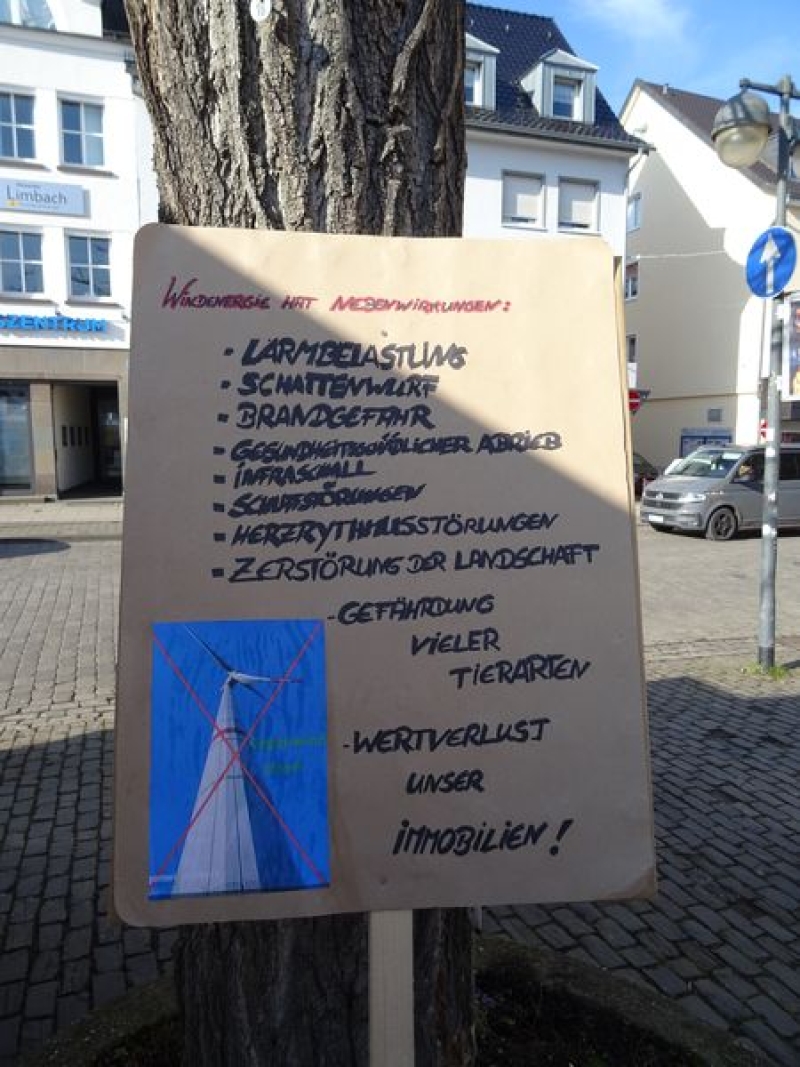 Limbach
SZENTRUM
WINDENERGIE HAT NEBENWIRKUNGEN:
• LÄRMBELASTUNG
• SCHATTENWURF
• BRANDGEFAHR
• GESUNDHEITSSCHÄDLICHER ABRIEB
• INFRASCHALL
• SCHLAFSTÖRUNGEN
• HERZRYTHMUSSTÖRUNGEN
• ZERSTÖRUNG DER LANDSCHAFT
- GEFÄHRDUNG
VIELER
TIERARTEN
- WERTVERLUST
UNSER
IMMOBILIEN!